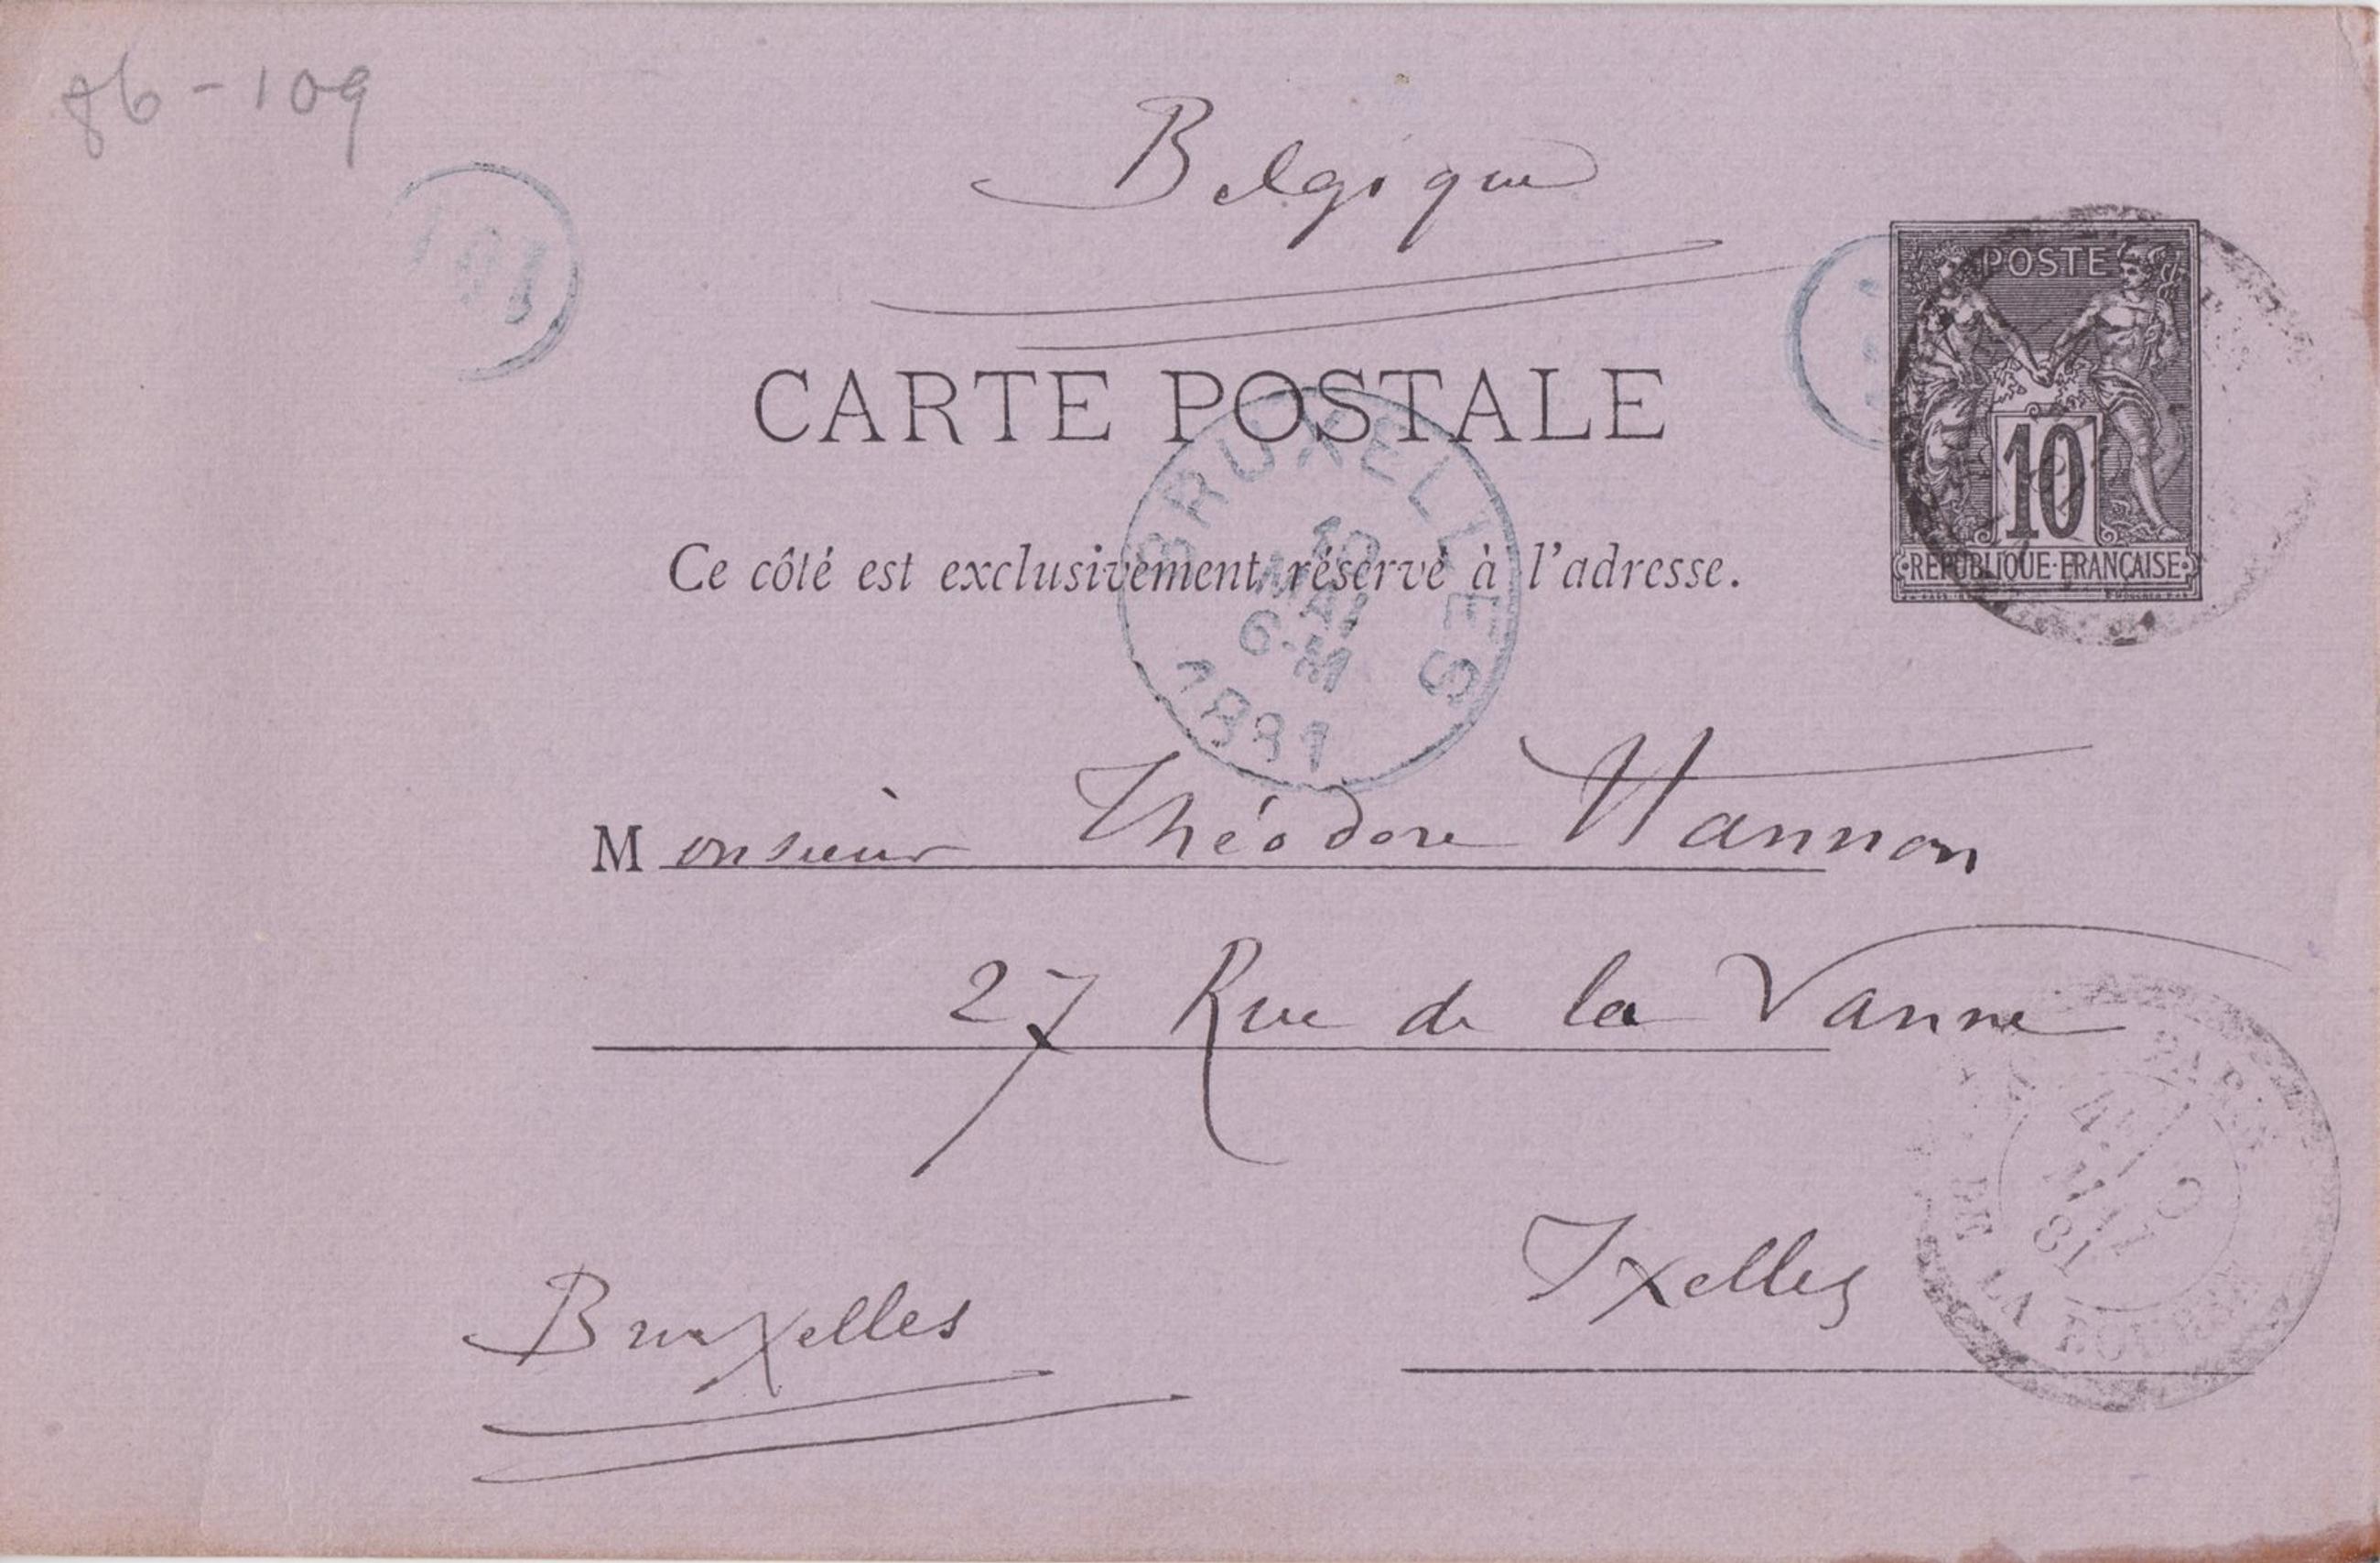 86-109
Belgique
POSTE
10
REPUBLIQUE·FRANÇAISE
CARTE POSTALE
BRUXELLES
10
MAI
6-M
1881
Ce côté est exclusivement réservé à l'adresse.
Monsieur Théodore Hannon
27 Rue de la Vanne
Ixelles
Bruxelles
PARIS
MAI
81
DE LA